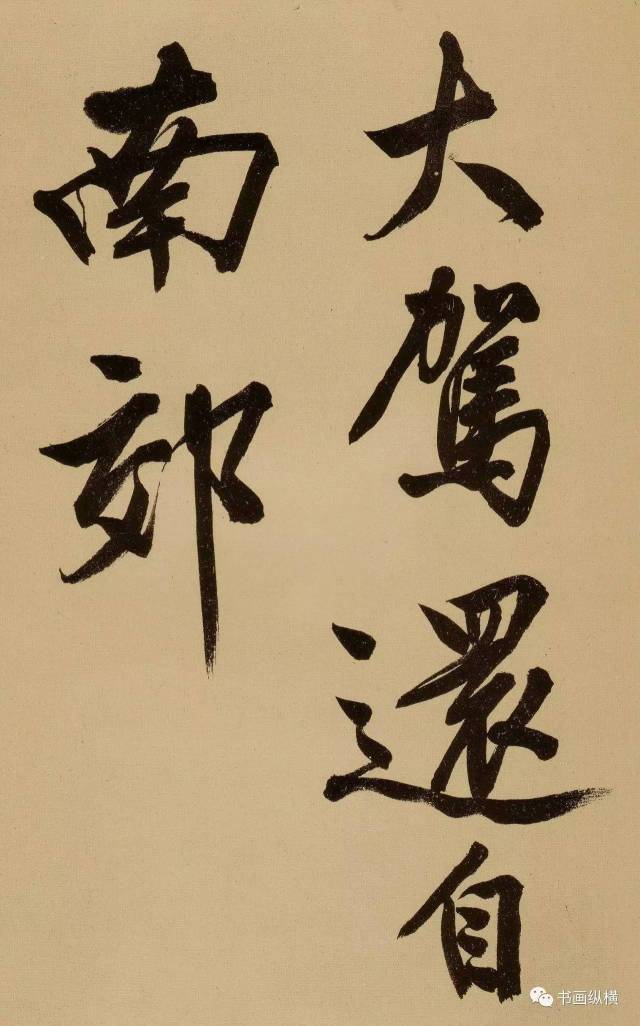 大駕還自
南郊
书画纵横